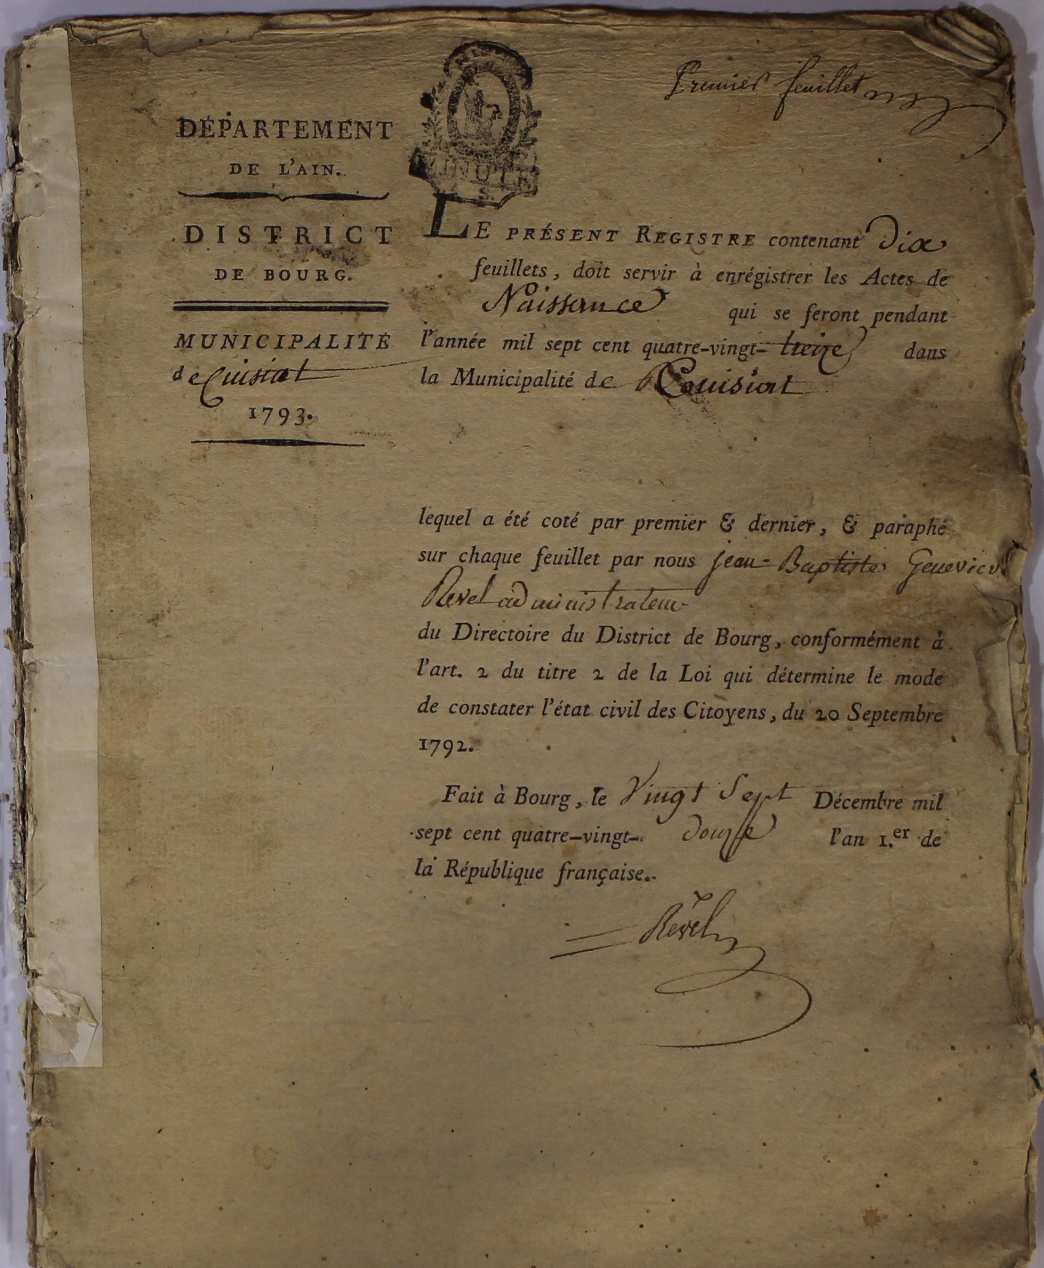 Premier feuillet
MINUTE
DÉPARTEMENT
DE L'AIN.
DISTRICT
DE BOURG.
MUNICIPALITÉ
de Cuisiat
1793.
LE PRÉSENT REGISTRE contenant Dix
feuillets, doit servir à enrégistrer les Actes de
Naissance qui se feront pendant
l'année mil sept cent quatre-vingt-treize dans
la Municipalité de Cuisiat
lequel a été coté par premier & dernier, & paraphé
sur chaque feuillet par nous jean-Baptiste Geneviev
Revel administrateur
du Directoire du District de Bourg, conformément à
l'art. 2 du titre 2 de la Loi qui détermine le mode
de constater l'état civil des Citoyens, du 20 Septembre
1792.
Fait à Bourg, le Vingt Sept Décembre mil
sept cent quatre-vingt-douze l'an 1.er de
la République française.
Revel